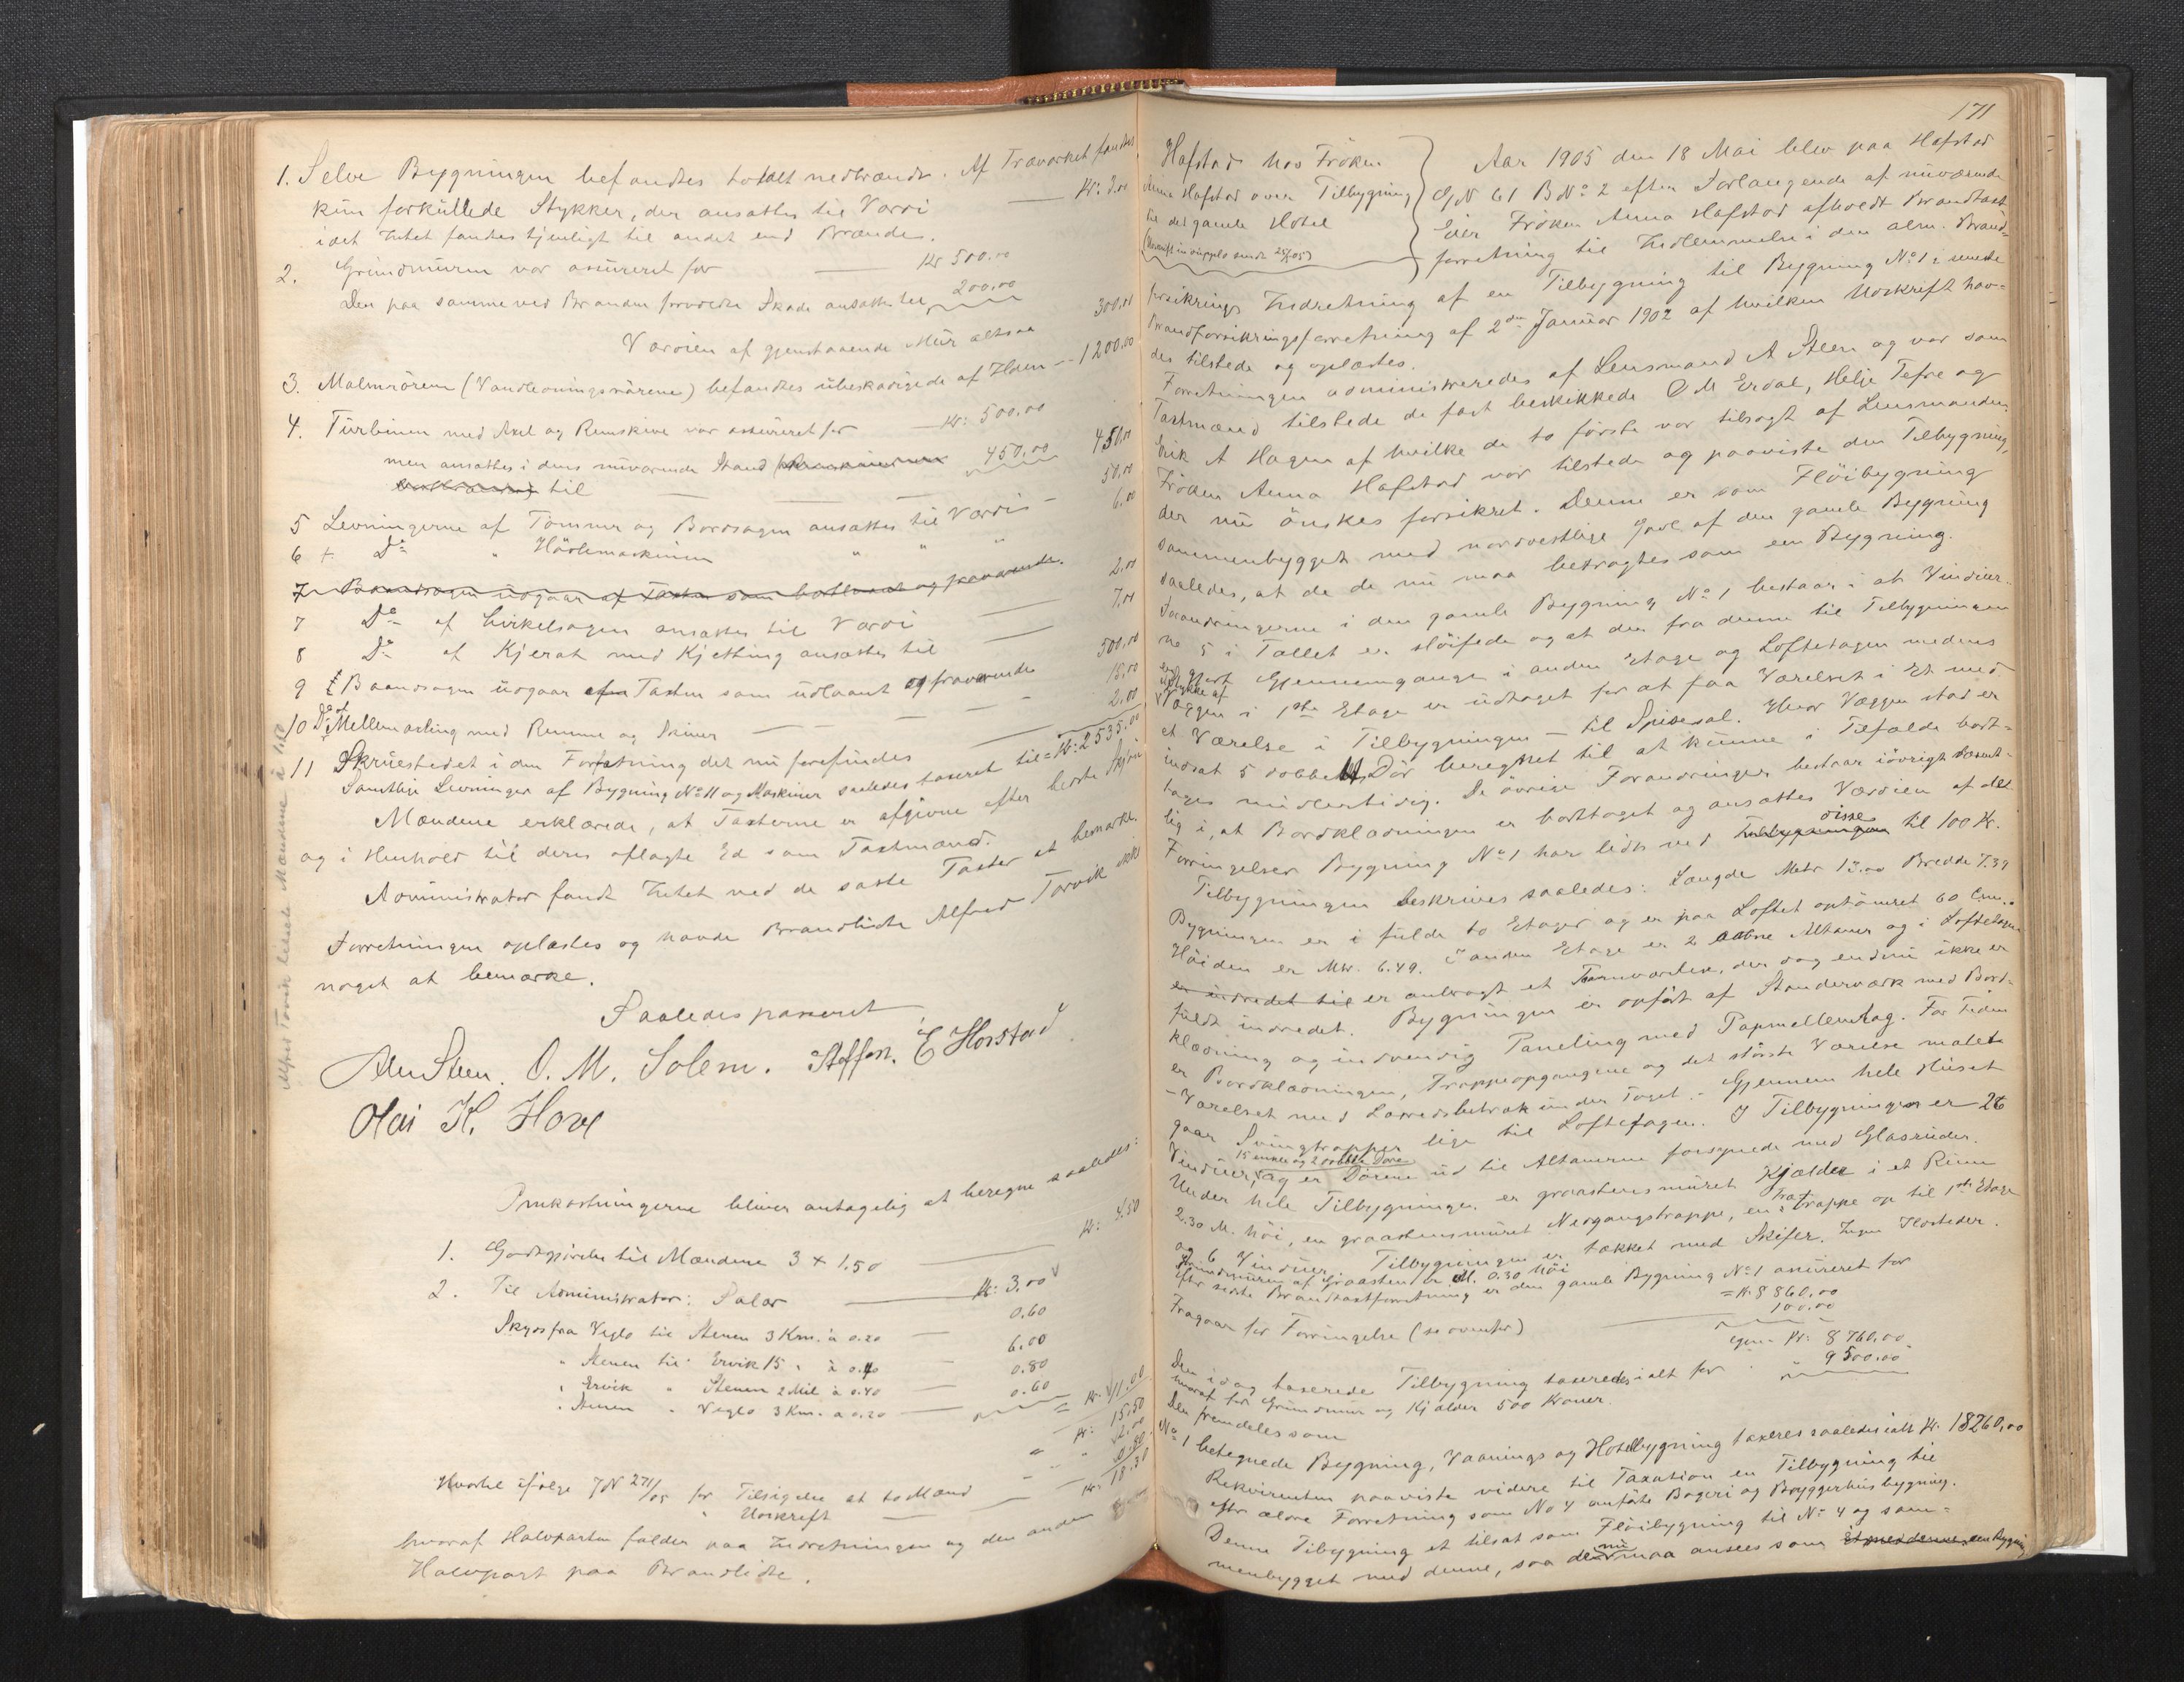 1. Selve Bygningen befandtes totalt nedbrændt. Af Træværket fandtes
kun forkullede Stykker, der ansattes til Værdi — Kr: 3.00
idet Intet fandtes tjenligt til andet end Brænde.
2. Grundmuren var assureret for — Kr 500.00
Den paa samme ved Branden forvoldte Skade ansattes til 200.00
Værdien af gjenstaaende Mur altsaa 300,00
3. Malmrörene (Vandledningsrörene) befandtes ubeskadigede af Ilden — 1200.00
4. Turbinen med Axel og Remskive var assureret for — Kr: 500.00
men ansattes i dens nuværende Stand 450.00 450,00
til
5 Levningerne af Tömmer og Bordsagen ansattes til Værdi — 50,00
6 + Do " Hövlemaskinen " " " 6.00
7 Baandsagen udgaar af Taxten som bortlaant og fraværende.
7 Do af Cirkelsagen ansattes til Værdi — 2.00
8 Do af Kjerat med Kjetting ansattes til — 7,00
9 Baandsagen udgaar af Taxten som udlaant og fraværende 500,00
10 Do af Mellemaxling med Remme og Skiver — 15.00
11 Skruestedet i den Forfatning det nu forefindes — 2.00
Samtlige Levninger af Bygning No 11 og Maskiner saaledes taxeret til = Kr: 2535.00
Mændene erklærede, at Taxterne er afgivne efter bedste Skjön
og i Henhold til deres aflagte Ed som Taxtmænd.
Administrator fandt Intet ved de satte Taxter at bemærke.
Forretningen oplæstes og havde Brandlidte Alfred Torvik ikke
noget at bemærke.
Saaledes passeret
Alm Steen. O. M. Solem. Steffen. E Horstad
Olai K. Hove
Omkostningerne bliver antagelig at beregne saaledes:
1. Godtgjörelse til Mændene 3 + 1.50 — Kr: 4.50
2. Til Administrator: Salær — Kr: 3.00
Skyds fra Veglo til Stenen 3 Km. à 0.20 — 0.60
" Stenen til Ervik 15 " à 0.40 — 6.00
" Ervik " Stenen 2 Mil à 0.40 — 0.80
" Stenen " Veglo 3 Km. à 0.20 — 0.60
= Kr. 11.00
Kr: 15.50
Hvortil ifölge JN 271/05 for Tilsigelse af to Mænd — 2.00
" Udskrift — 0.80
Kr: 18.30
hvoraf Halvparten falder paa Indretningen og den anden
Halvpart paa Brandlidte.
171
Hafstad hos Fröken
Anna Hafstad over Tilbygning
til det gamle Hotel
Aar 1905 den 18 Mai blev paa Hafstad
GN 61 BNo 2 efter Forlangende af nuværende
Eier Fröken Anna Hafstad afholdt Brandtaxt
forretning til Indlemmelse i den alm. Brand=
forsikrings Indretning af en Tilbygning til Bygning No 1 i seneste
Brandforsikringsforretning af 2den Januar 1902 af hvilken Udskrift hav=
des tilstede og oplæstes.
Forretningen administreredes af Lensmand A Steen og var som
Taxtmænd tilstede de fast beskikkede O M Erdal, Helje Tefre og
Erik A Hagen af hvilke de to förste var tilsagt af Lensmanden.
Fröken Anna Hafstad var tilstede og paaviste den Tilbygning,
der nu önskes forsikret. Denne er som Flöibygning
sammenbygget med nordvestlige Gavl af den gamle Bygning
saaledes, at de de nu maa betragtes som een Bygning.
Forandringerne i den gamle Bygning No 1 bestaar i at Vinduer=
ne 5 i Tallet er slöifede og at der fra denne til Tilbygningen
er gjort Gjennemgange i anden Etage og Loftetagen medens
Stykke af
Væggen i 1ste Etage er udtaget for at faa Værelset i Et med
et Værelse i Tilbygningen — til Spisesal. Hvor Væggen stod er
indsat 5 dobbelt Dör beregnet til at kunne i Tilfælde bort=
tages midlertidig. De övrige Forandringer bestaar iövrigt væsent=
lig i, at Bordklædningen er borttaget og ansattes Værdien af det
Forringelser Bygning No 1 har lidt ved disse til 100 Kr.
Tilbygningen beskrives saaledes: Længde Metr 13.00 Bredde 7.39
Bygningen er i fulde to Etager og er paa Loftet optömret 60 Cm..
Höiden er Mtr. 6.49. I anden Etage er 2 aabne Altaner og i Loftetagen
er indredet til er anbragt et Taarnværelse, der dog endnu ikke er
fuldt indredet. Bygningen er opfört af Stænderværk med Bord=
klædning og indvendig Paneling med Papmellemlag. For Tiden
er Bordklædningen, Trappeopgangene og det störste Værelse malet
— Værelset med Lærredsbetræk under Taget. — Gjennem hele Huset
gaar Svingtrapper lige til Loftetagen. I Tilbygningen er 26
15 enkle og 2 dobbelte Döre
Vinduer, og er Dörene ud til Altanerne forsynede med Glasruder.
Under hele Tilbygningen er graastensmuret Kjælder i et Rum
2.30 M. höi, en graastensmuret Nedgangstrappe, en Trætrappe op til 1ste Etage
og 6 Vinduer. Tilbygningen er tækket med Skifer. Ingen Ildsteder.
Grundmuren af Graasten er M. 0.30 höi
Efter sidste Brandtaxtforretning er den gamle Bygning No 1 assureret for
= Kr 8860.00
Fragaar for Forringelse (se ovenfor) — 100.00
igjen Kr: 8760.00
Den idag taxerede Tilbygning taxeredes ialt for " 9500.00
hvoraf for Grundmur og Kjælder 500 Kroner.
Den fremdeles som
No 1 betegnede Bygning, Vaanings og Hotelbygning taxeres saaledes ialt Kr. 18260,00
Rekvirenten paaviste videre til Taxation en Tilbygning til
efter ældre Forretning som No 4 anförte Bageri og Bryggerhusbygning.
Denne Tilbygning et tilsat som Flöibygning til No 4 og sam=
menbygget med denne, saa de nu maa ansees som een Bygning